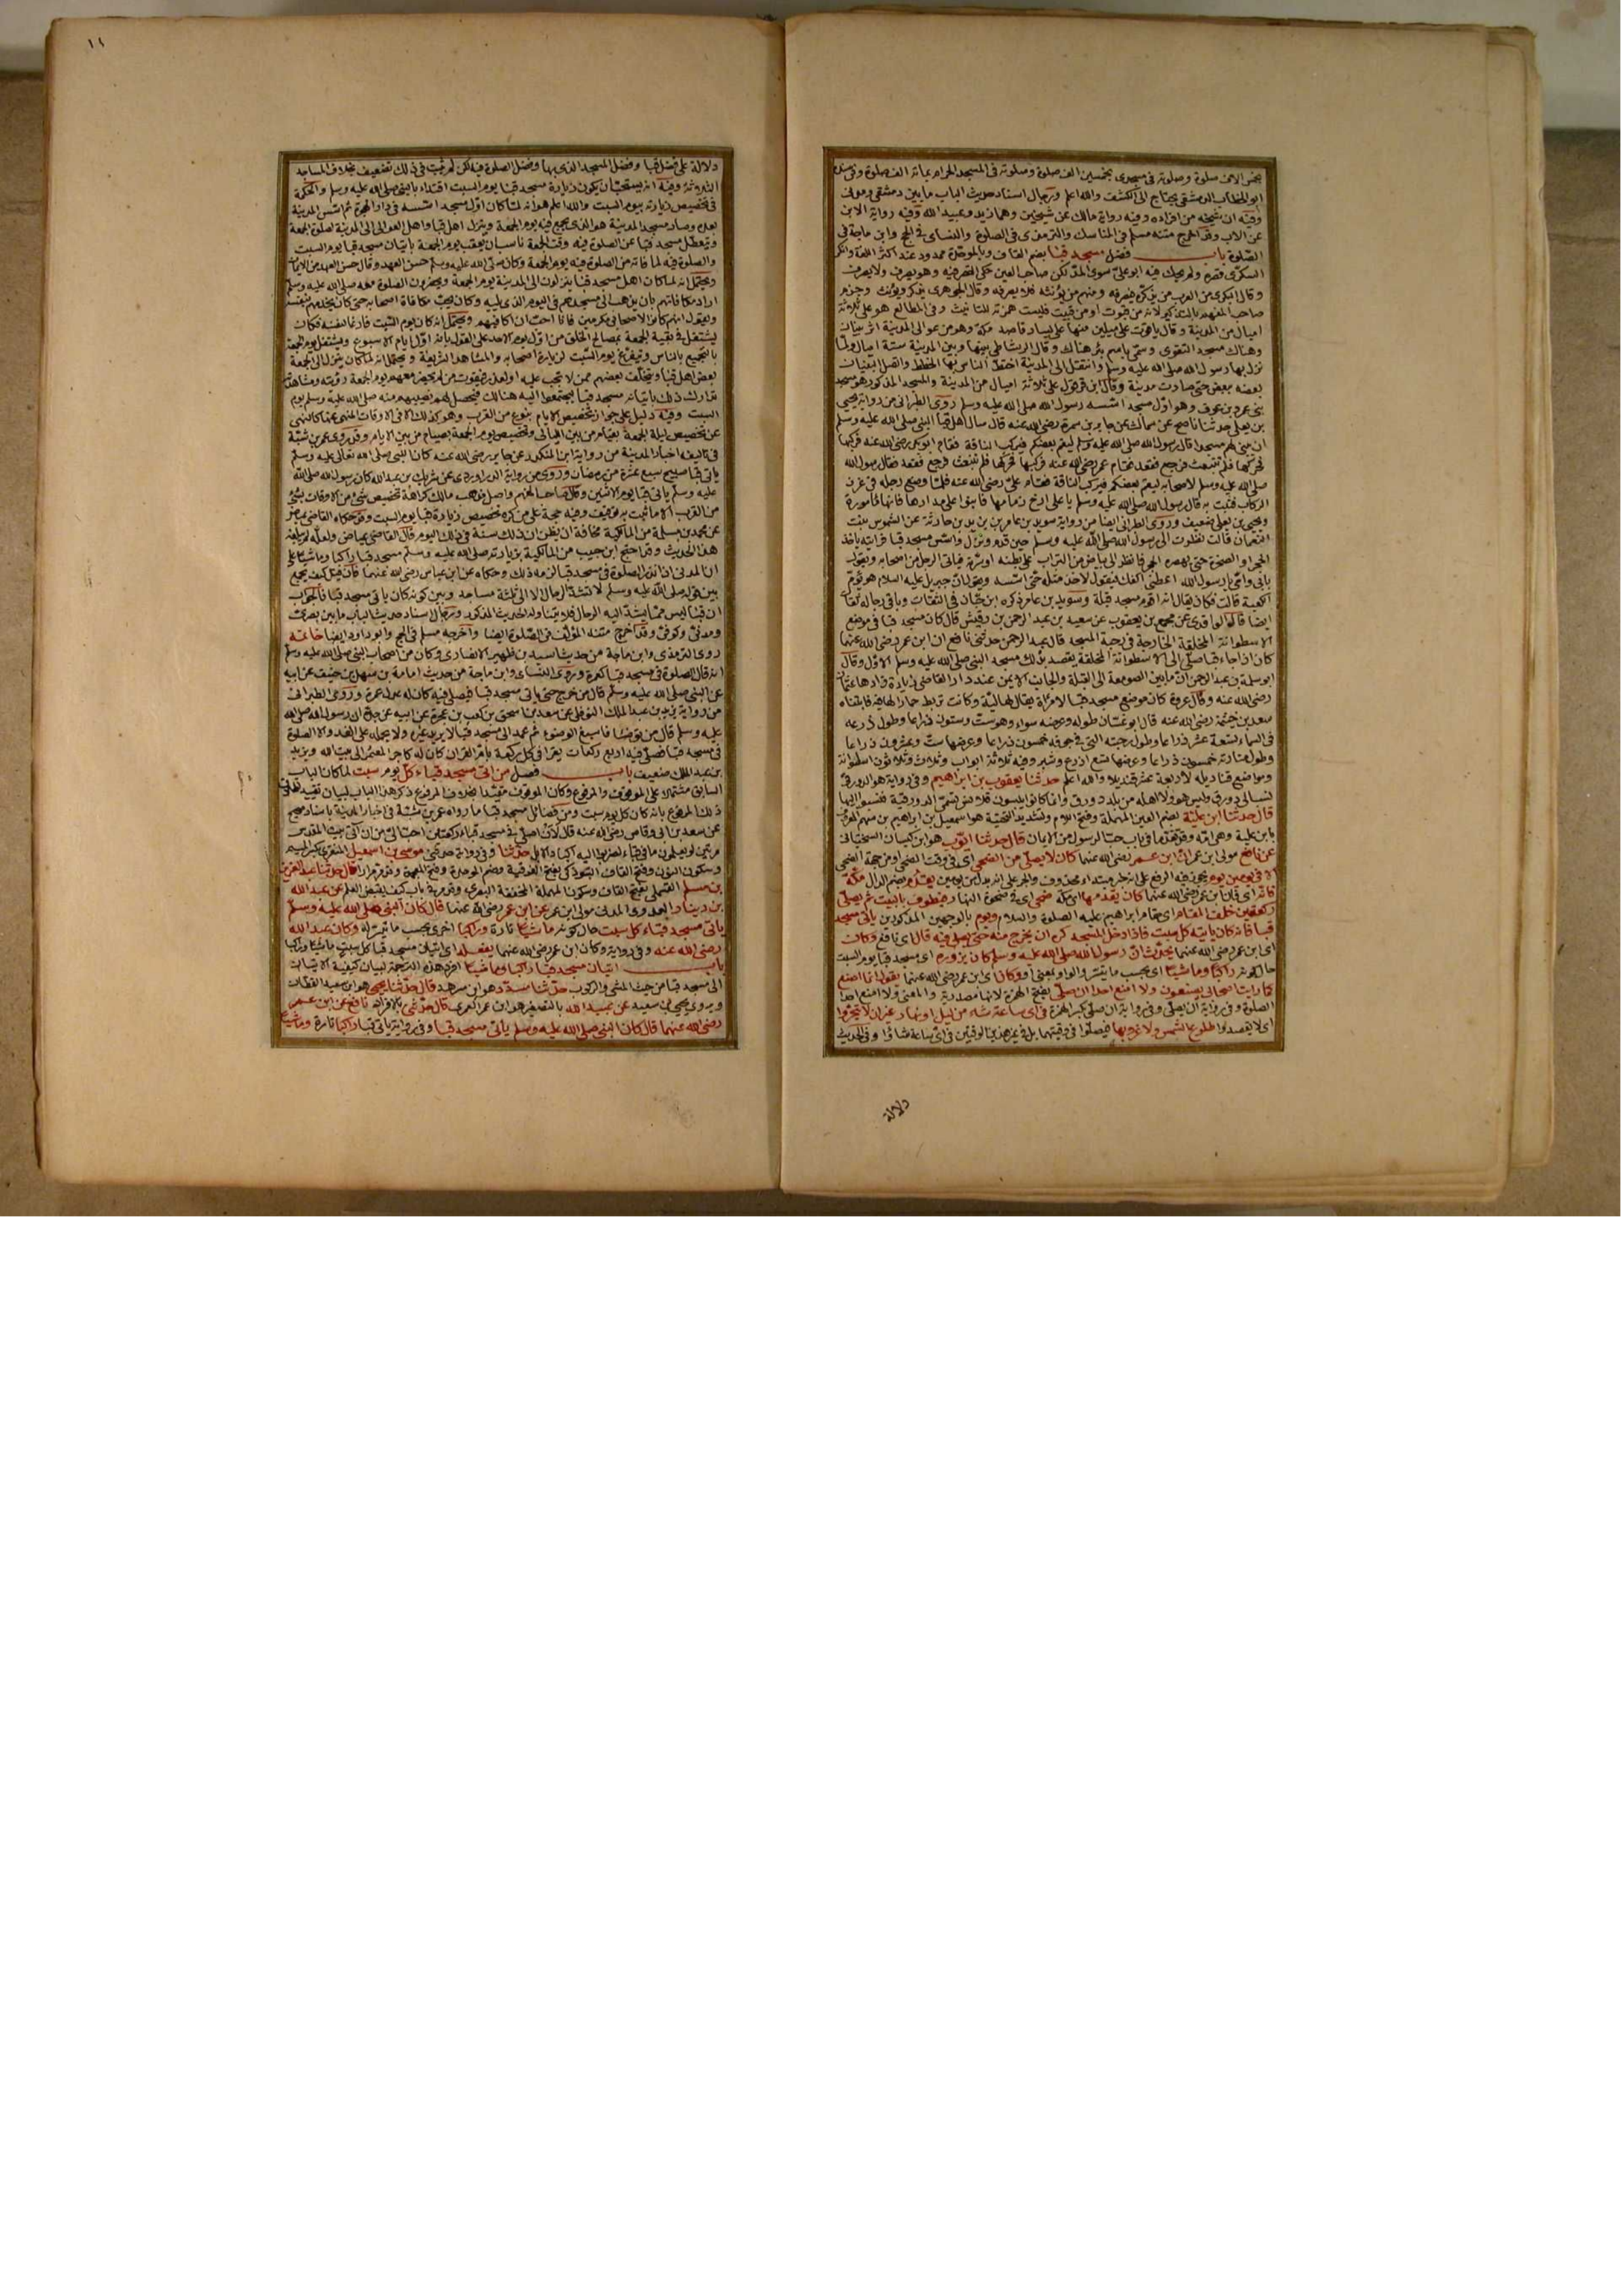 بخمس الاف صلوة وصلوته فى مسجدى بخمسين الف صلوة وصلوته فى المسجد الحرام بمائة الف صلوة وفى سنده
ابو الخطاب الدمشقى يحتاج الى الكشف والله اعلم ورجال اسناد حديث الباب ما بين دمشقى ومدنى
وفيه ان شيخه من افراده وفيه رواية مالك عن شيخين وهما زيد وعبيد الله وفيه رواية الابن
عن الاب وقد اخرج متنه مسلم فى المناسك والترمذى فى الصلوة والنسائى فى الحج وابن ماجة فى
الصلوة باب فضل مسجد قبا بضم القاف وبالموحدة ممدود عند اكثر اللغة وانكر
السكرى قصره ولم يحك فيه ابو على سوى المد لكن صاحب العين حكى القصر فيه وهو يصرف ولا يصرف
وقال البكرى من العرب من يذكره فيصرفه ومنهم من يؤنثه فلا يصرفه وقال الجوهرى يذكر ويؤنث وجزم
صاحب المفهم بالتذكير لانه من قبوت او من قبيت فليست همزته للتانيث وفى المطالع هو على ثلاثة
اميال من المدينة وقال ياقوت على ميلين منها على يسار قاصد مكة وهو من عوالى المدينة اثر بنيان
وهناك مسجد التقوى وسمى باسم بئر هناك وقال الرشاطى بينها وبين المدينة ستة اميال ولما
نزل بها رسول الله صلى الله عليه وسلم وانتقل الى المدينة اختط الناس بها الخطط واتصل البنيان
بعضه ببعض حتى صارت مدينة وقال ابن قرقول على ثلاثة اميال من المدينة والمسجد المذكور هو مسجد
بنى عمرو بن عوف وهو اول مسجد اسسه رسول الله صلى الله عليه وسلم روى الطبرانى من رواية يحيى
بن يعلى حدثنا ناصح عن سماك عن جابر بن سمرة رضى الله عنه قال سال اهل قبا النبى صلى الله عليه وسلم
ان يبنى لهم مسجدا قال رسول الله صلى الله عليه وسلم ليقم بعضكم فيركب الناقة فقام ابو بكر رضى الله عنه فركبها
فحركها فلم تنبعث فرجع فقعد فقام عمر رضى الله عنه فركبها فحركها فلم تنبعث فرجع فقعد فقال رسول الله
صلى الله عليه وسلم لاصحابه ليقم بعضكم فيركب الناقة فقام على رضى الله عنه فلما وضع رجله فى غرز
الركاب فنبت به قال رسول الله صلى الله عليه وسلم يا على ارخ زمامها فابنوا على مدارها فانها مامورة
ويحيى بن يعلى ضعيف وروى الطبرانى ايضا من رواية سويد بن عامر بن يزيد بن حارثة عن الشموس بنت
النعمان قالت نظرت الى رسول الله صلى الله عليه وسلم حين قدم ونزل واسس مسجد قبا فرايته ياخذ
الحجر او الصخرة حتى يهصره الحجر فانظر الى بياض من التراب على بطنه او سرته فياتى الرجل من اصحابه ويقول
بابى وامى يا رسول الله اعطنى اكفك فيقول لا خذ مثله حتى اسسه ويقول ان جبريل عليه السلام هو يؤم
الكعبة قالت فكان يقال انه اقوم مسجد قبلة وسويد بن عامر ذكره ابن حبان فى الثقات وباقى رجاله ثقات
ايضا قال الواقدى عن مجمع بن يعقوب عن سعيد بن عبد الرحمن بن رقيش قال كان مسجد قبا فى موضع
الاسطوانة المخلقة الخارجة فى رحبة المسجد قال عبد الرحمن حدثنى نافع ان ابن عمر رضى الله عنهما
كان اذا جاء قبا صلى الى الاسطوانة المخلقة يقصد بذلك مسجد النبى صلى الله عليه وسلم الاول وقال
ابو سلمة بن عبد الرحمن ان ما بين الصومعة الى القبلة والجانب الايمن عند دار القاضى زيادة زادها عثمان
رضى الله عنه وقال عروة كان موضع مسجد قبا لامراة يقال لها لية وكانت تربط حمارا لها فيه فابتناه
سعد بن خيثمة رضى الله عنه قال ابو غسان طوله وعرضه سواء وهو ست وستون ذراعا وطول ذرعه
فى السماء تسعة عشر ذراعا وطول رحبته التى فى جوفه خمسون ذراعا وعرضها ست وعشرون ذراعا
وطول منارته خمسون ذراعا وعرضها تسع اذرع وشبر وفيه ثلاثة ابواب وثلاث وثلاثون اسطوانة
ومواضع قناديله لاربعة عشر قنديلا والله اعلم حدثنا يعقوب بن ابراهيم وفى رواية هو الدورقى
نسب الى دورق وليس هو ولا اهله من بلد دورق وانما كانوا يلبسون قلانس تسمى الدورقية فنسبوا اليها
قال حدثنا ابن علية بضم العين المهملة وفتح اللام وتشديد التحتية هو اسمعيل بن ابراهيم بن سهم المعروف
بابن علية وهى امه وقد تقدما فى باب حب الرسول من الايمان قال حدثنا ايوب هو ابن كيسان السختيانى
عن نافع مولى ابن عمر ان ابن عمر رضى الله عنهما كان لا يصلى من الضحى اى فى وقت الضحى او من جهة الضحى
الا فى يومين يوم يجوز فيه الرفع على انه خبر مبتداء محذوف والجر على انه بدل من يومين يقدم بضم الدال مكة
فانه اى فان ابن عمر رضى الله عنهما كان يقدمها اى مكة ضحى اى فى ضحوة النهار فيطوف بالبيت ثم يصلى
ركعتين خلف المقام اى مقام ابراهيم عليه الصلوة والسلام ويوم بالوجهين المذكورين ياتى مسجد
قبا فانه كان ياتيه كل سبت فاذا دخل المسجد كره ان يخرج منه حتى يصلى فيه قال اى نافع وكان
اى ابن عمر رضى الله عنهما يحدث ان رسول الله صلى الله عليه وسلم كان يزوره اى مسجد قبا يوم السبت
حال كونه راكبا وماشيا اى بحسب ما يتيسر والواو بمعنى او وكان اى ابن عمر رضى الله عنهما يقول انما اصنع
كما رايت اصحابى يصنعون ولا امنع احدا ان صلى بفتح الهمزة لانها مصدرية والمعنى ولا امنع احدا
الصلوة وفى رواية ان يصلى وفى رواية ان صلى بكسر الهمزة فى اى ساعة شاء من ليل او نهار غير ان لا تتحروا
اى لا يقصدوا طلوع الشمس ولا غروبها فيصلوا فى وقتيهما بل فى غير هذين الوقتين فى اى ساعة شاؤا وفى الحديث
دلالة
١١
دلالة على فضل قبا وفضل المسجد الذى بها وفضل الصلوة فيه لكن لم يثبت فى ذلك تضعيف بخلاف المساجد
الثلاثة وفيه انه يستحب ان يكون زيارة مسجد قبا يوم السبت اقتداء بالنبى صلى الله عليه وسلم والحكمة
فى تخصيص زيارته بيوم السبت والله اعلم هو انه لما كان اول مسجد اسسه فى دار الهجرة ثم اسس المدينة
بعده وصار مسجد المدينة هو الذى يجمع فيه يوم الجمعة وينزل اهل قبا واهل العوالى الى المدينة لصلوة الجمعة
ويتعطل مسجد قبا عن الصلوة فيه وقت الجمعة ناسب ان يعقب يوم الجمعة باتيان مسجد قبا يوم السبت
والصلوة فيه لما فاته من الصلوة فيه يوم الجمعة وكان صلى الله عليه وسلم حسن العهد وقال حسن العهد من الايمان
ويحتمل انه لما كان اهل مسجد قبا ينزلون الى المدينة يوم الجمعة ويحضرون الصلوة معه صلى الله عليه وسلم
اراد مكافاتهم بان يذهب الى مسجدهم فى اليوم الذى يليه وكان يحب مكافاة اصحابه حتى كان يخدمهم بنفسه
ويقول انهم كانوا لاصحابى مكرمين فانا احب ان اكافيهم ويحتمل انه كان يوم السبت فارغا لنفسه فكان
يشتغل فى بقية الجمعة بمصالح الخلق من اول يوم الاحد على القول بانه اول ايام الاسبوع ويشتغل يوم الجمعة
بالتجميع بالناس ويتفرغ يوم السبت لزيارة اصحابه والمشاهد الشريفة ويحتمل انه لما كان ينزل الى الجمعة
بعض اهل قبا ويتخلف بعضهم ممن لا تجب عليه او لعذر فيفوت من لم يحضر معهم يوم الجمعة رؤيته ومشاهدته
تدارك ذلك باتيانه مسجد قبا ليجتمعوا اليه هنالك فيحصل لهم نصيبهم منه صلى الله عليه وسلم يوم
السبت وفيه دليل على جواز تخصيص الايام بنوع من القرب وهو كذلك الا فى الاوقات المنهى عنها كالنهى
عن تخصيص ليلة الجمعة بقيام من بين الليالى وتخصيص يوم الجمعة بصيام من بين الايام وقد روى عمر بن شبة
فى تاليفه اخبار المدينة من رواية ابن المنكدر عن جابر رضى الله عنه كان النبى صلى الله تعالى عليه وسلم
ياتى قبا صبيح سبع عشرة من رمضان وروى من رواية الدراوردى عن شريك بن عبد الله كان رسول الله صلى الله
عليه وسلم ياتى قبا يوم الاثنين وقال صاحب المفهم واصل مذهب مالك كراهة تخصيص شئ من الاوقات بشئ
من القرب الا ما ثبت به توقيف وفيه حجة على من كره تخصيص زيارة قبا يوم السبت وقد حكاه القاضى عياض
عن محمد بن مسلمة من المالكية مخافة ان يظن ان ذلك سنة فى ذلك اليوم قال القاضى عياض ولعله لم يبلغه
هذا الحديث وقد احتج ابن حبيب من المالكية بزيارته صلى الله عليه وسلم مسجد قبا راكبا وماشيا على
ان المدنى اذا نذر الصلوة فى مسجد قبا لزمه ذلك وحكاه عن ابن عباس رضى الله عنهما فان قيل كيف يجمع
بين قوله صلى الله عليه وسلم لا تشد الرحال الا الى ثلثة مساجد وبين كونه كان ياتى مسجد قبا فالجواب
ان قبا ليس مما يشد اليه الرحال فلا يتناوله الحديث المذكور ورجال اسناد حديث الباب ما بين بصرى
ومدنى وكوفى وقد اخرج متنه المؤلف فى الصلوة ايضا واخرجه مسلم فى الحج وابو داود ايضا خاتمة
روى الترمذى وابن ماجة من حديث اسيد بن ظهير الانصارى وكان من اصحاب النبى صلى الله عليه وسلم
انه قال الصلوة فى مسجد قبا كعمرة وروى النسائى وابن ماجة من حديث امامة بن سهل بن حنيف عن ابيه
عن النبى صلى الله عليه وسلم قال من خرج حتى ياتى مسجد قبا فيصلى فيه كان له عدل عمرة وروى الطبرانى
من رواية يزيد بن عبد الملك النوفلى عن سعد بن اسحق بن كعب بن عجرة عن ابيه عن جده ان رسول الله صلى الله
عليه وسلم قال من توضا فاسبغ الوضوء ثم عمد الى مسجد قبا لا يريد غيره ولا يحمله على الغدو الا الصلوة
فى مسجد قبا فصلى فيه اربع ركعات يقرا فى كل ركعة بام القران كان له كاجر المعتمر الى بيت الله ويزيد
بن عبد الملك ضعيف باب فضل من اتى مسجد قباء كل يوم سبت لما كان الباب
السابق مشتملا على الموقوف والمرفوع وكان الموقوف مقيدا بخلاف المرفوع ذكر هذا الباب لبيان تقييد
ذلك المرفوع بانه كان كل يوم سبت ومن فضائل مسجد قبا ما رواه عمر بن شبة فى اخبار المدينة باسناد صحيح
عن سعد بن ابى وقاص رضى الله عنه قال لان اصلى فى مسجد قباء ركعتين احب الى من ان آتى بيت المقدس
مرتين لو يعلمون ما فى قباء لضربوا اليه اكباد الابل حدثنا وفى رواية حدثنى موسى بن اسمعيل المنقرى بكسر الميم
وسكون النون وفتح القاف التبوذكى بفتح الفوقية وضم الموحدة وفتح المعجمة وقد مر مرارا قال حدثنا عبد العزيز
بن مسلم القسملى بفتح القاف وسكون المهملة المخففة البصرى وقد مر فى باب كيف يقبض العلم عن عبد الله
بن دينار العدوى المدنى مولى ابن عمر عن ابن عمر رضى الله عنهما قال كان النبى صلى الله عليه وسلم
ياتى مسجد قباء كل سبت حال كونه ماشيا تارة وراكبا اخرى بحسب ما تيسر له وكان عبد الله
رضى الله عنه وفى رواية وكان ابن عمر رضى الله عنهما يفعله اى اتيان مسجد قبا كل سبت ماشيا وراكبا
باب اتيان مسجد قباء راكبا وماشيا افرد هذه الترجمة لبيان كيفية الاتيان
الى مسجد قبا من حيث المشى والركوب حدثنا مسدد هو ابن مسرهد قال حدثنا يحيى هو ابن سعيد القطان
ويروى يحيى بن سعيد عن عبيد الله بالتصغير هو ابن عمر العمرى قال حدثنى بالافراد نافع عن ابن عمر
رضى الله عنهما قال كان النبى صلى الله عليه وسلم ياتى مسجد قبا وفى رواية ياتى قبا راكبا تارة وماشيا